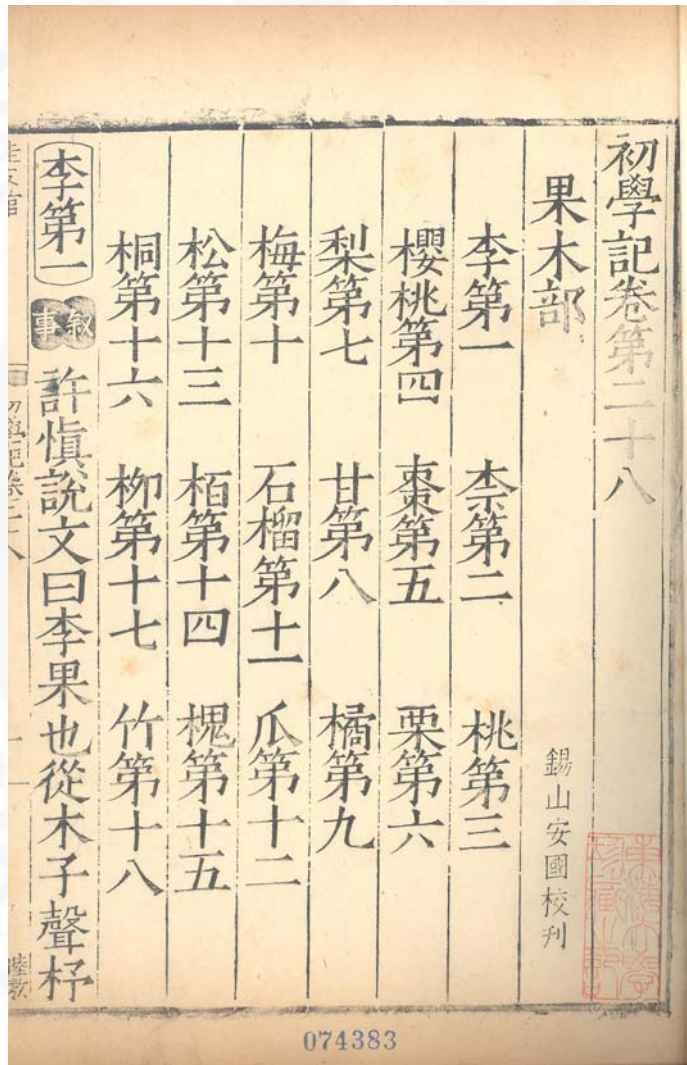 初學記卷第二十八
果木部
錫山安國校刋
李第一 柰第二 桃第三
櫻桃第四 棗第五 栗第六
梨第七 甘第八 橘第九
梅第十 石榴第十一 瓜第十二
松第十三 栢第十四 槐第十五
桐第十六 栁第十七 竹第十八
李第一 叙事 許慎說文曰李果也從木子聲杍
074383